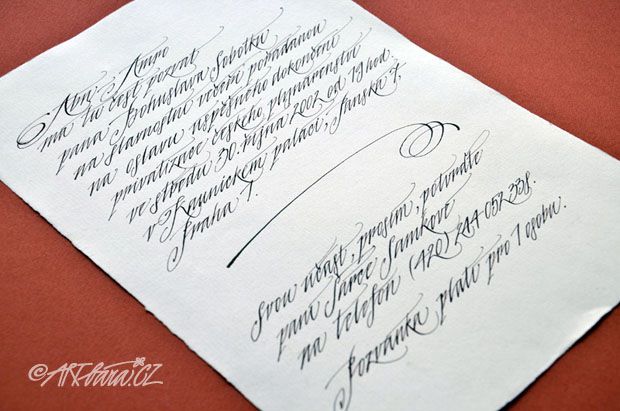 má tu čest pozvat
pana Bohuslava Sobotku
na slavnostní večeři pořádanou
na oslavu úspěšného dokončení
privatizace českého plynárenství
ve středu 30. října 2002 od 19 hod.
v Kaunickém paláci, Panská 7,
Praha 1.
Svou účast, prosím, potvrďte
paní Šárce Samkové
na telefon (420) 244 052 338.
Pozvánka platí pro 1 osobu.
© ARTbara.CZ